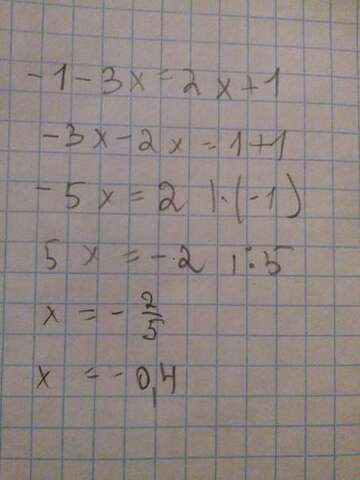 -1-3x=2x+1
-3x-2x=1+1
-5x=2 |·(-1)
5x=-2 |:5
x=-2/5
x=-0,4